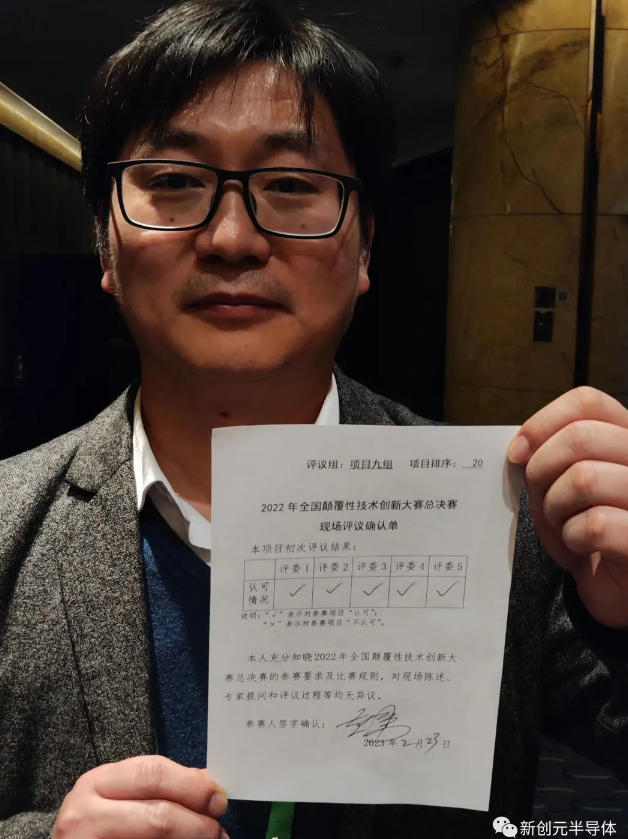 评议组：项目九组 项目排序：20
2022年全国颠覆性技术创新大赛总决赛
现场评议确认单
本项目初次评议结果：
评委1 评委2 评委3 评委4 评委5
认可情况 ✓ ✓ ✓ ✓ ✓
说明：“√”表示对参赛项目“认可”；
“×”表示对参赛项目“不认可”。
本人充分知晓2022年全国颠覆性技术创新大
赛总决赛的参赛要求及比赛规则，对现场陈述、
专家提问和评议过程等均无异议。
参赛人签字确认：
2023年2月23日
新创元半导体